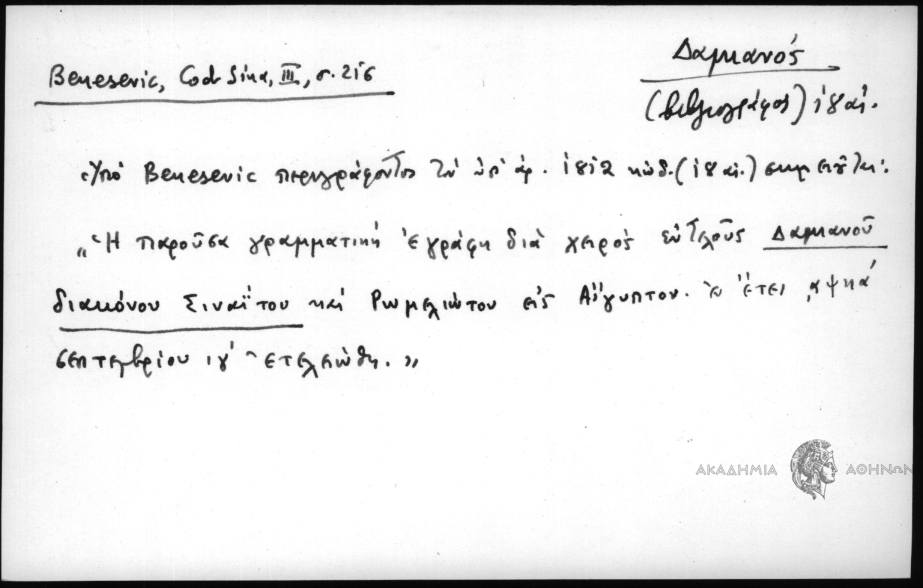 Benesevic, Cod. Sina, III, σ. 216
Δαμιανός
(βιβλιογράφος) ι8 αἰ.
Ὑπό Benesevic περιγράφοντος τόν ὑπ' ἀρ. 1812 κώδ. (ι8 αἰ.) σημειοῦται:
„Ἡ παροῦσα γραμματική ἐγράφη διά χειρός εὐτελοῦς Δαμιανοῦ
διακόνου Σιναΐτου καί Ρωμελιώτου εἰς Αἴγυπτον. ἐν ἔτει ͵αψκά
σεπτεμβρίου ιγ' ἐτελειώθη.„
ΑΚΑΔΗΜΙΑ ΑΘΗΝΩΝ